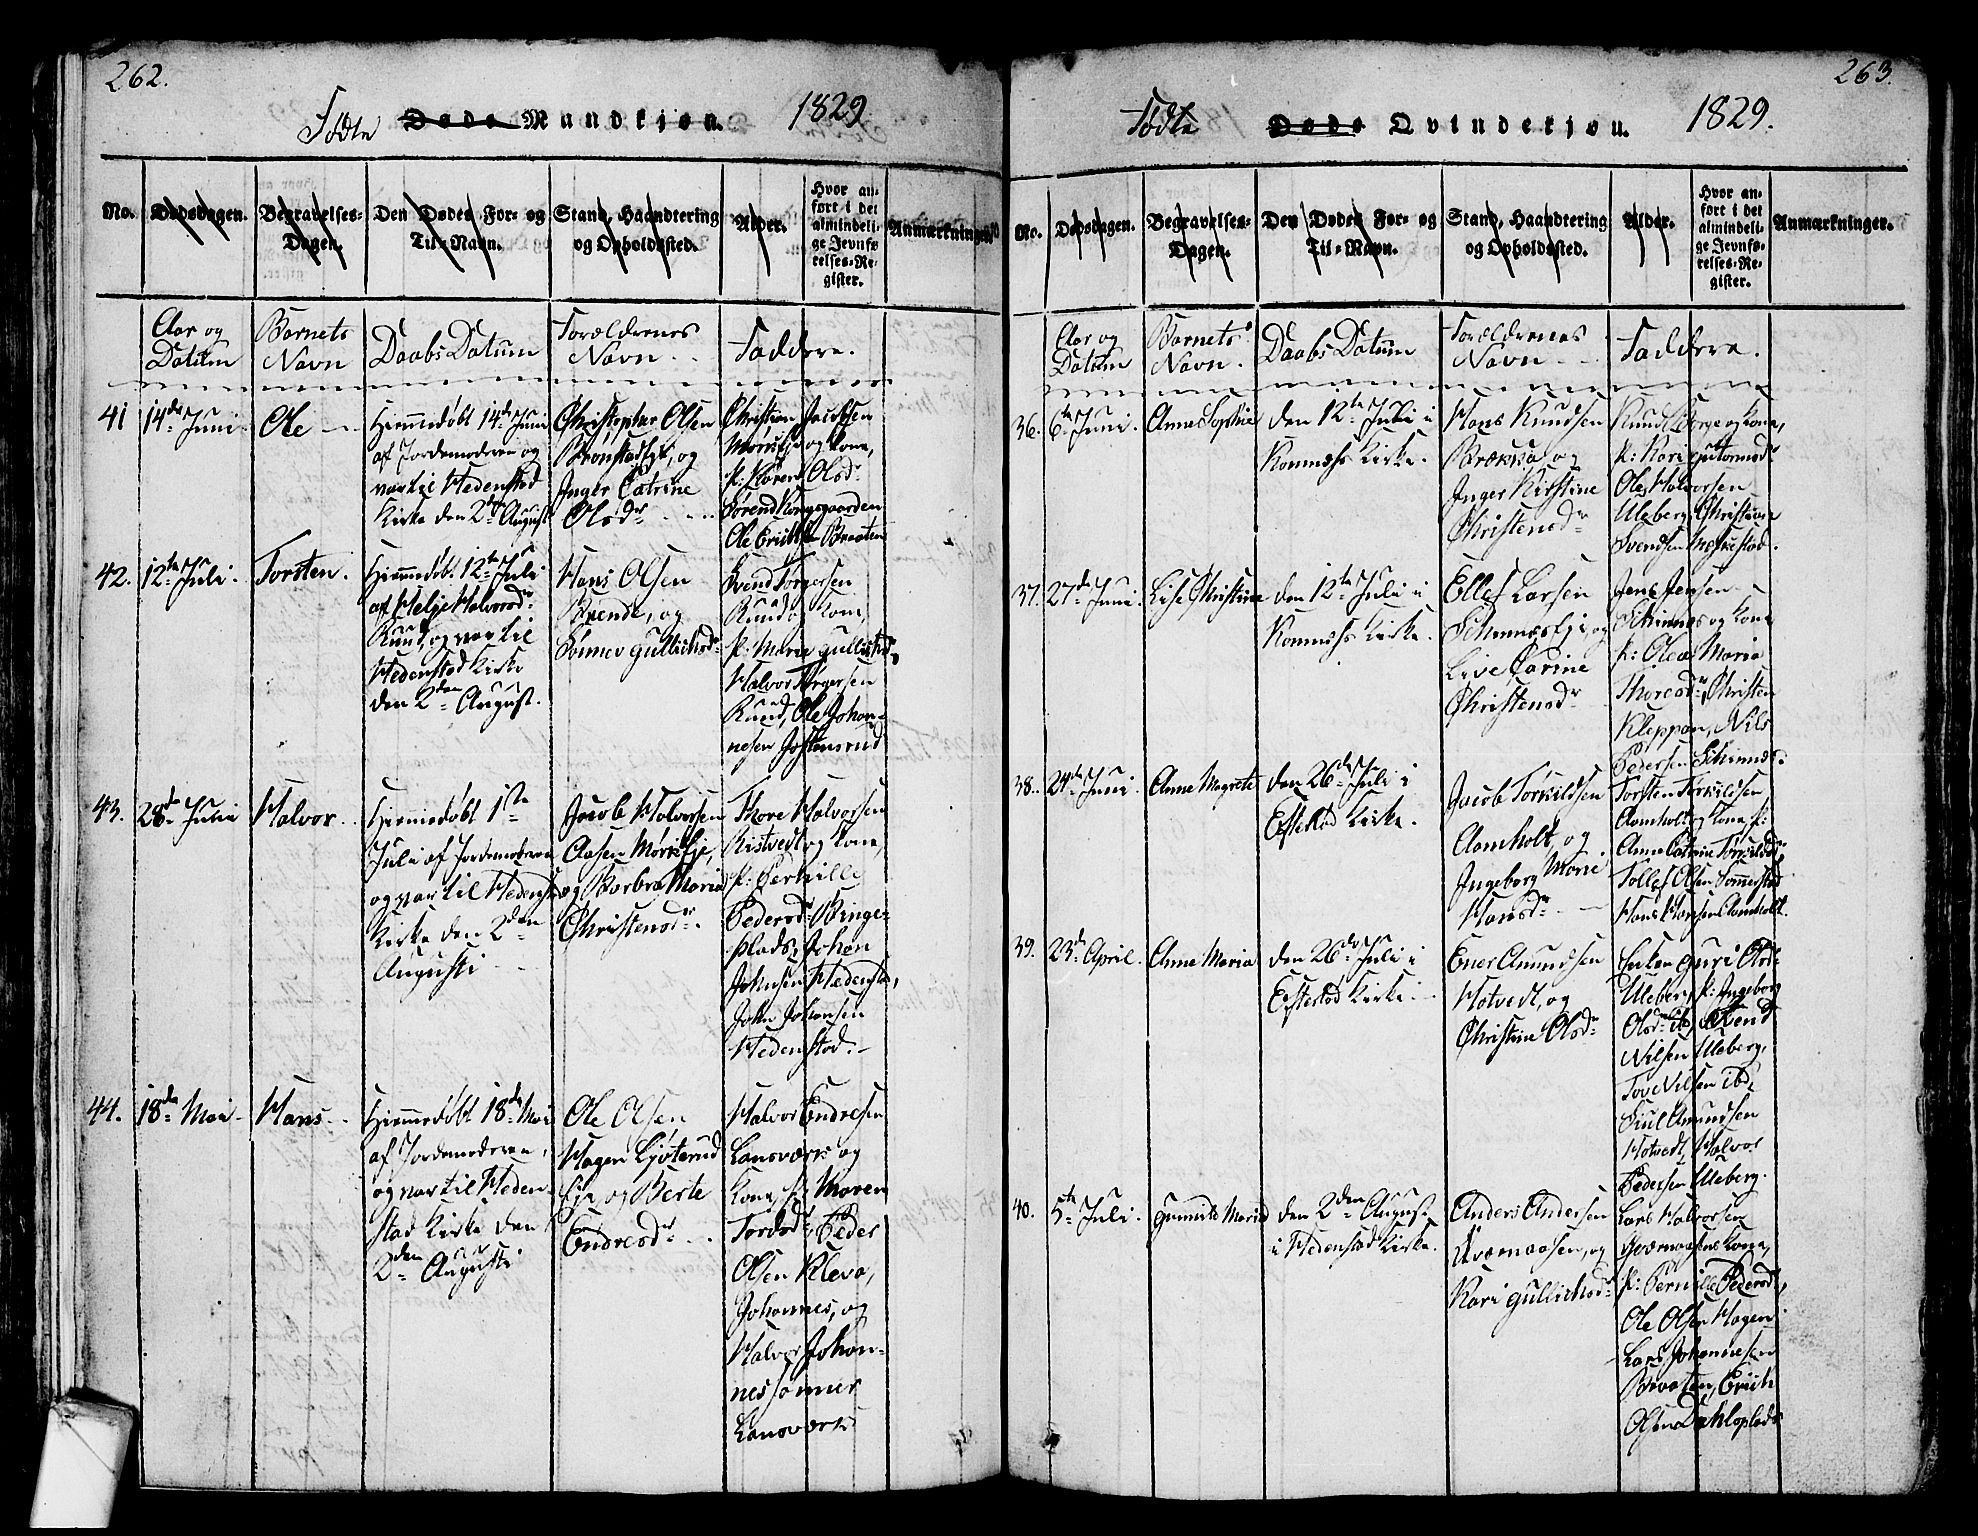 262.
Födte Døde Mandkjøn. 1829.
No. Dødsdagen. Begravelses-Dagen. Den Dødes For- og Til-Navn. Stand, Haandtering og Opholdssted. Alder. Hvor anført i det almindelige Jevnførelses-Register. Anmærkninger.
Aar og Datum
Barnets Navn
Daabs Datum
Forældrenes Navn
Faddere.
41
14de Juni
Ole
Hiemmedøbt 14de Juni
af Jordemoderen og
var til Hedenstad
Kirke den 2den August
Christopher Olsen
og
Inger Catrine
Olsdr
Christian Jacobsen
og Kone,
p: Karen Olsd.
42.
12te Juli.
Torsten.
Hiemmedøbt 12te Juli
af Helje Halvorsdr
Ruud, og var til
Hedenstad Kirke
den 2den August.
Hans Olsen
Brende, og
Gullichsdr
Svend Torgersen
Ruud og Kone,
p: Marie Gullichsdr,
Halvor Torgersen
Ruud, Ole Johan-
nesen Jostensrud
43.
28de Juli
Halvor
Hiemmedøbt 1ste
Juli af Jordemoderen
og var til Hedenst.
Kirke den 2den
Augusti
Jacob Halvorsen
Aasen
og Barbra Maria
Christensdr.
Thore Halvorsen
Ristvedt og Kone,
p: Pernille
Pedersdr Binge-
plads, Johan
Johnsen Hedensta,
John Johansen
Hedenstad.
44.
18de Mai
Hans
Hiemmedøbt 18de Mai
af Jordemoderen,
og var til Heden-
stad Kirke den
2den Augusti
Ole Olsen
Hagen Ljøterud
Eje og Berte
Endresdr
Halvor Endresen
Lansværk og
Kone, p: Maren
Tordsdr, Peder
Olsen Kleva,
Johannes, og
Halvor Johan-
nessønner
Lansværk
263.
Födte Døde Qvindekjøn. 1829.
No. Dødsdagen. Begravelses-Dagen. Den Dødes For- og Til-Navn. Stand, Haandtering og Opholdssted. Alder. Hvor anført i det almindelige Jevnførelses-Register. Anmærkninger.
Aar og Datum
Barnets Navn.
Daabs Datum
Forældrenes Navn
Faddere.
36.
6te Juni.
Anne Sophie
den 12te Juli i
Komnæs Kirke.
Hans Knudsen
Brække og
Inger Kirstine
Christensdr
og Kone,
p: Kari Gutormsdr
Ole Halvorsen
Uleberg, Christian
Svendsen
37.
27de Juni.
Lise Christine
den 12te Juli i
Komnæs Kirke.
Ellef Larsen
og
Live Carine
Christensdr
Jens Jensen
og Kone
p: Olea Maria
Thoresdr, Christen
Kleppan, Nils
Pedersen
38.
24de Juni.
Anne Magrete
den 26de Juli i
Eftelød Kirke.
Jacob Torkildsen
Aamholt, og
Ingeborg Marie
Hansdr
Torsten Torkildsen
Aamholt og Kone, p:
Anne Catrine Torkildsdr
Tollef Olsen
Hans Hansen Aamholt.
39.
23de April.
Anne Maria
den 26de Juli i
Eftelød Kirke
Ener Amundsen
Hotvedt, og
Christine Olsdr
Enken Guri Olsdr
Uleberg, p: Ingeborg
Olsdr ib,
Nilsen Uleberg,
Tove Nilsen ibd,
Amundsen
Hotvedt, Halvor
Pedersen Uleberg.
40.
5te Juli.
Gunnild Maria
den 2den August
i Hedenstad Kirke.
Anders Andersen
Kværnaasen, og
Kari Gullichsdr
Lars Halvorsen
Kværnaasens Kone,
p: Pernille Pedersd,
Ole Olsen Hagen
Lars Johannesen
Braaten, Erich
Olsen Dahlsplads